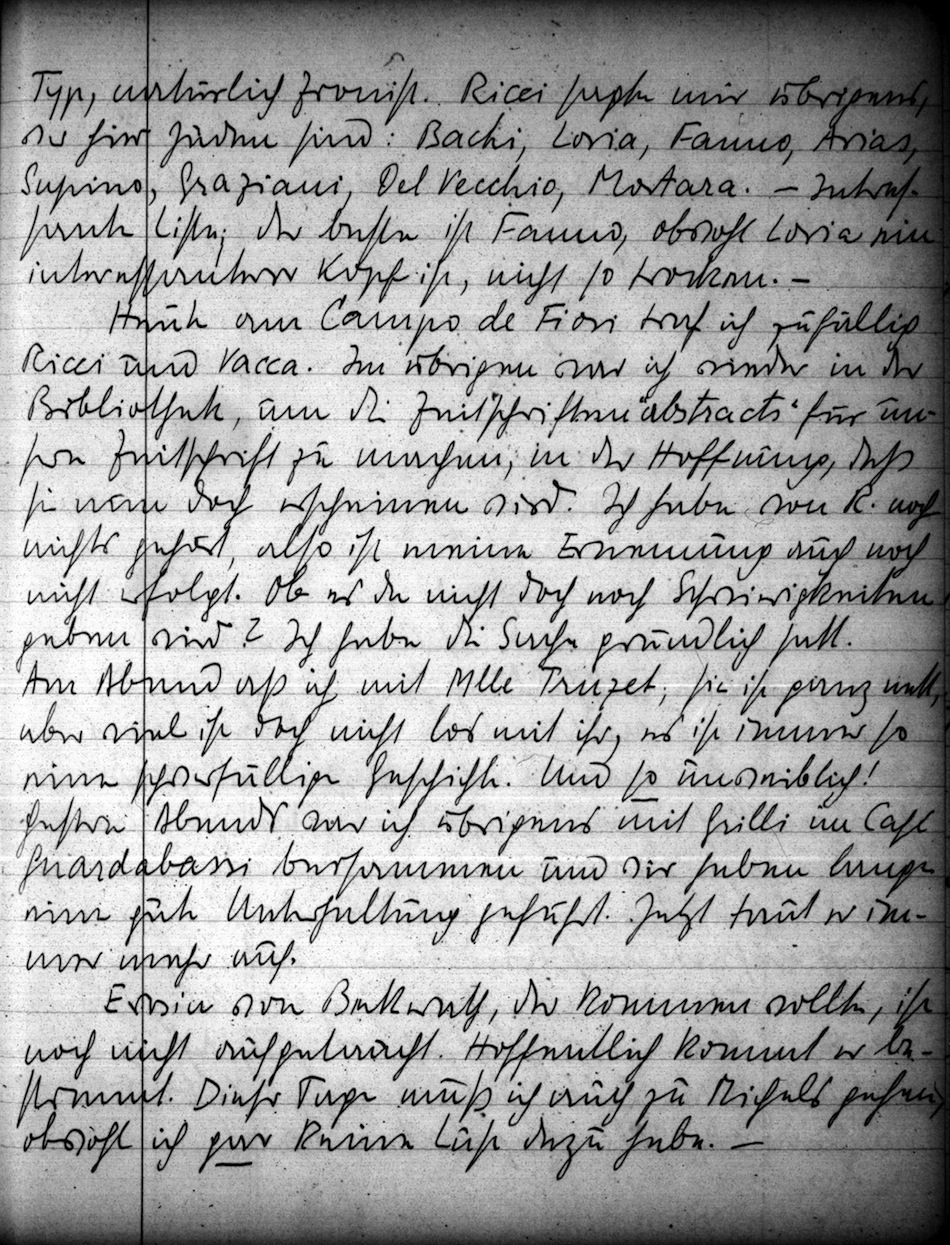 Typ, natürlich Zionist. Ricci sagte mir übrigens,
wer hier Juden sind: Bachi, Loria, Fanno, Arias,
Supino, Graziani, Del Vecchio, Mortara. – Interes-
sante Liste; der beste ist Fanno, obwohl Loria ein
interessanterer Kopf ist, nicht so trocken. –
Heute am Campo de Fiori traf ich zufällig
Ricci und Vacca. Im übrigen war ich wieder in der
Bibliothek, um die Zeitschriften "abstracts" für un-
sere Zeitschrift zu machen, in der Hoffnung, daß
sie nun doch erscheinen wird. Ich habe von R. noch
nichts gehört, also ist meine Ernennung auch noch
nicht erfolgt. Ob es da nicht doch noch Schwierigkeiten
geben wird? Ich habe die Sache gründlich satt.
Am Abend aß ich mit Mlle Truzet; sie ist ganz nett,
aber viel ist doch nicht los mit ihr, es ist immer so
eine schwerfällige Geschichte. Und so unweiblich!
Gestern Abend war ich übrigens mit Grilli im Café
Guardabassi beisammen und wir haben lange
eine gute Unterhaltung geführt. Jetzt taut er im-
mer mehr auf.
Erwin von Beckerath, der kommen sollte, ist
noch nicht aufgetaucht. Hoffentlich kommt er be-
stimmt. Dieser Tage muß ich auch zu Michels gehen,
obwohl ich gar keine Lust dazu habe. –